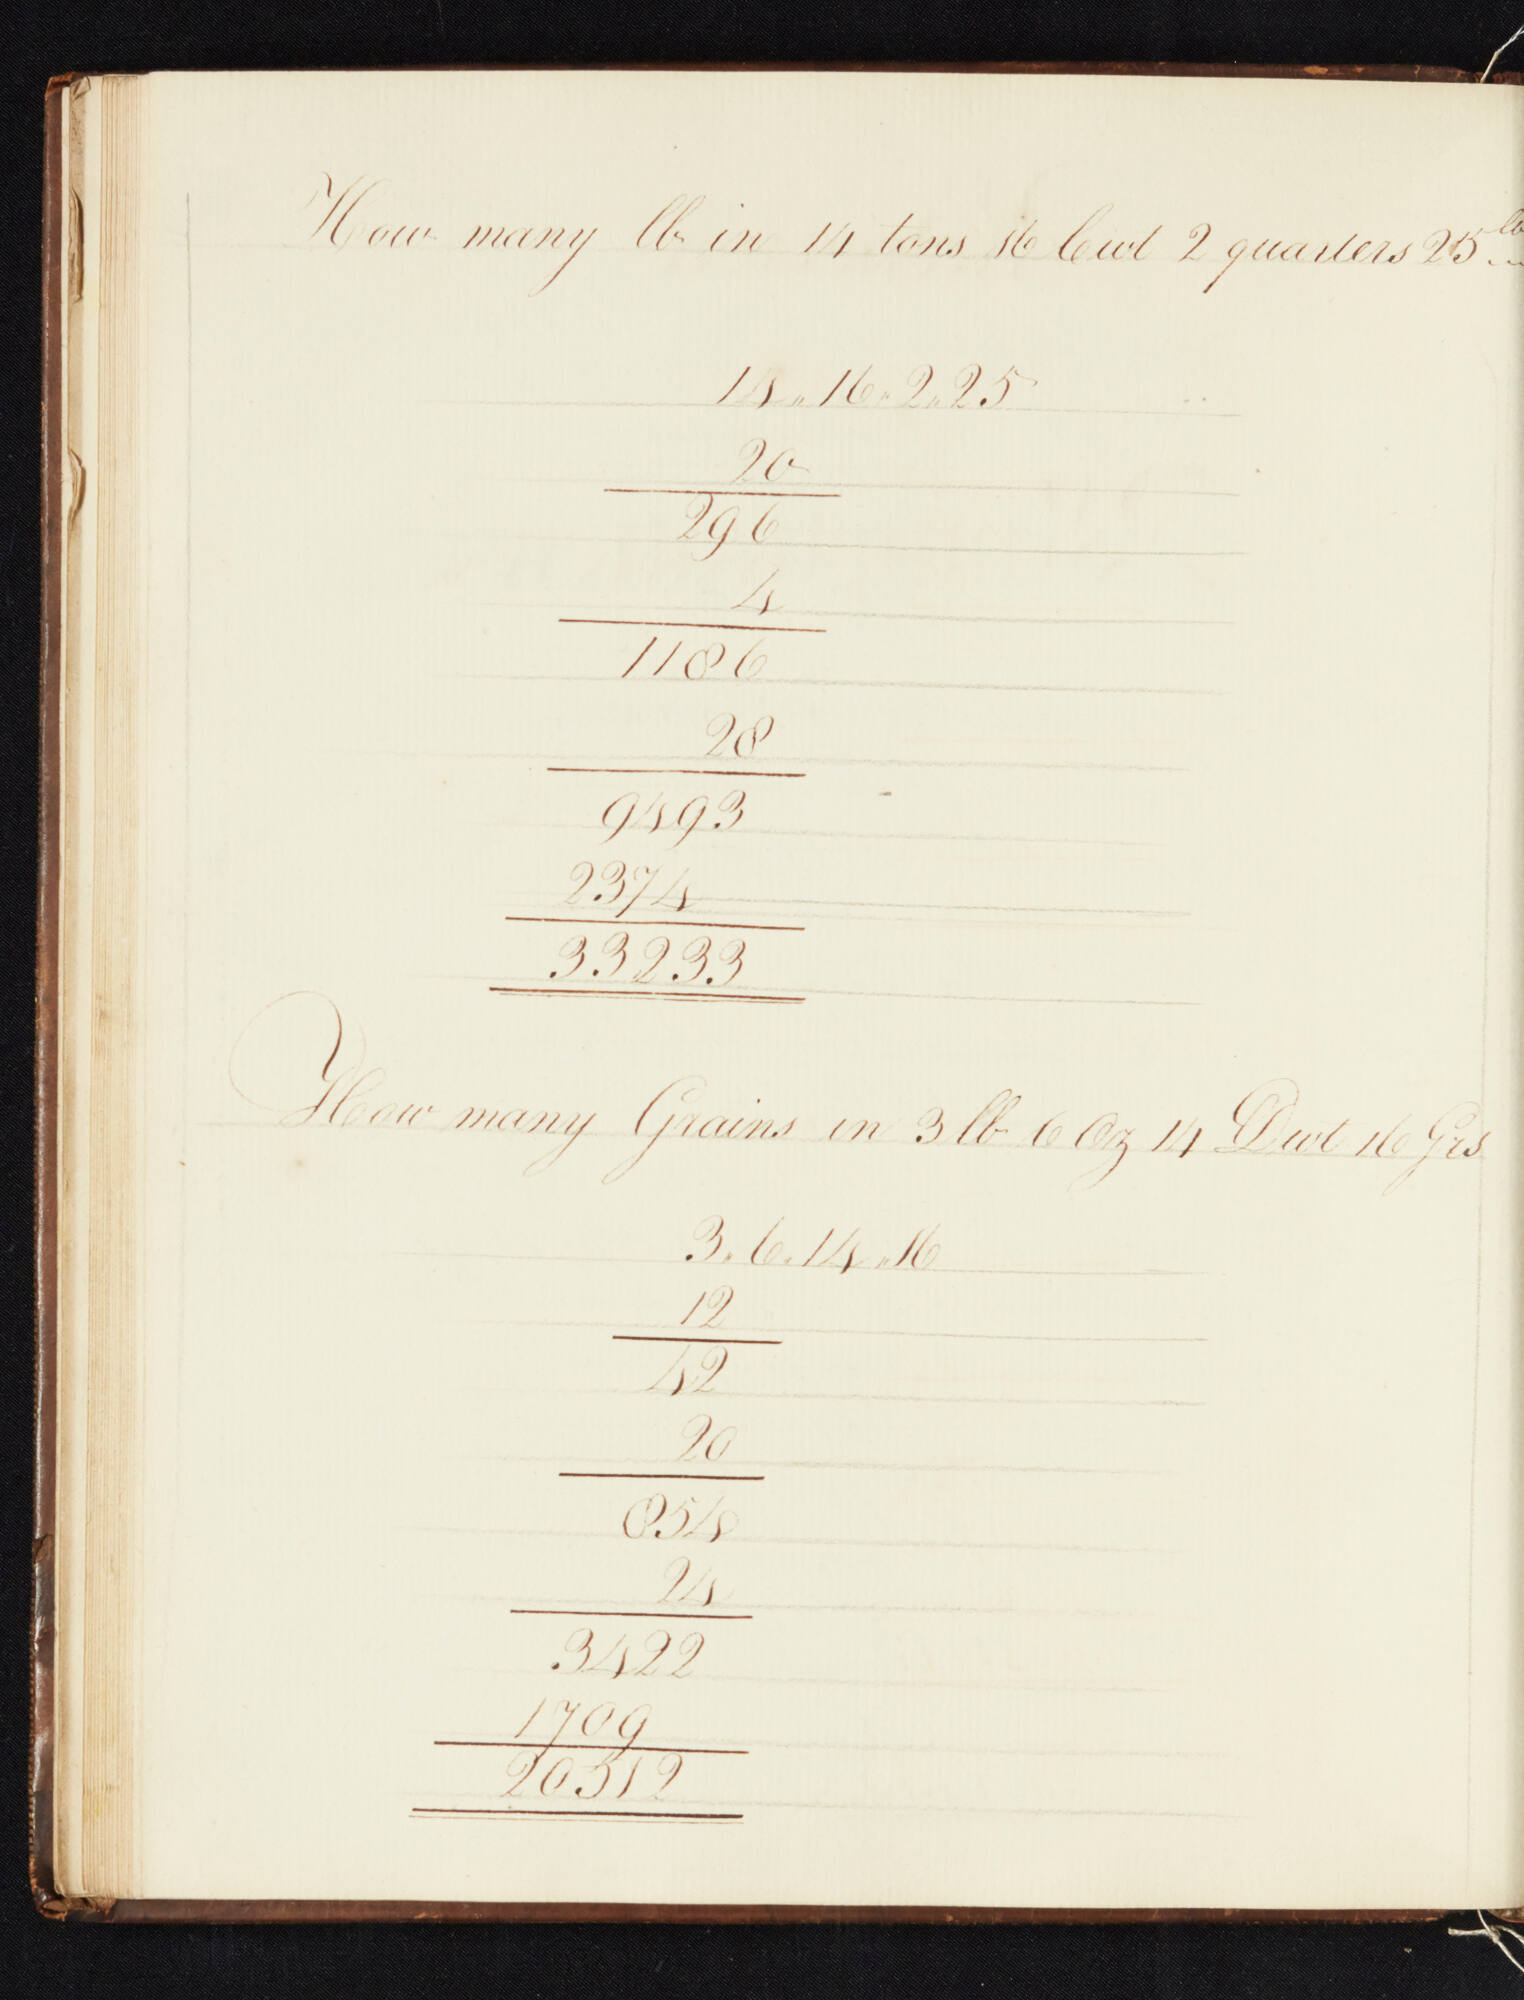 How many lb in 14 tons 16 Cwt 2 quarters 25 lb
14 " 16 " 2 " 25
20
296
4
1186
28
9493
2374
33233
How many Grains in 3 lb 6 Oz 14 Dwt 16 Grs
3 " 6 " 14 " 16
12
42
20
854
24
3422
1709
20512